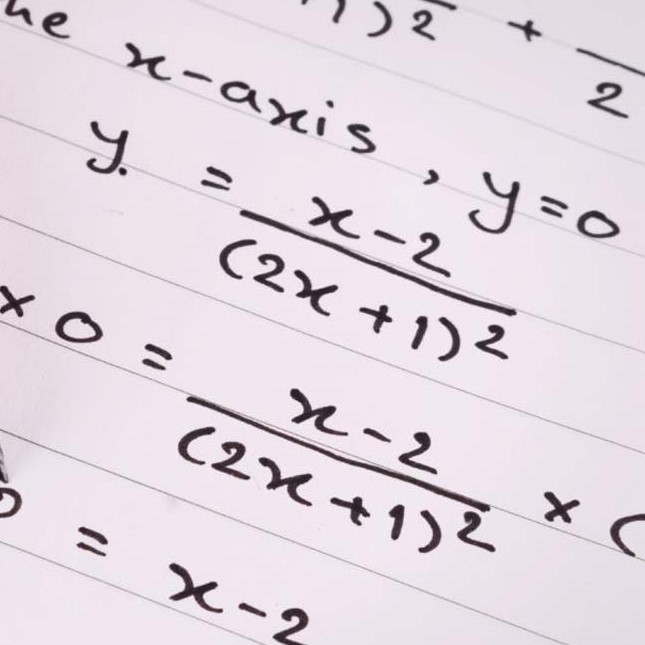 )² + /2
x-axis, y=0
y. = (x-2)/(2x+1)²
× 0 = (x-2)/(2x+1)² × (
= x-2